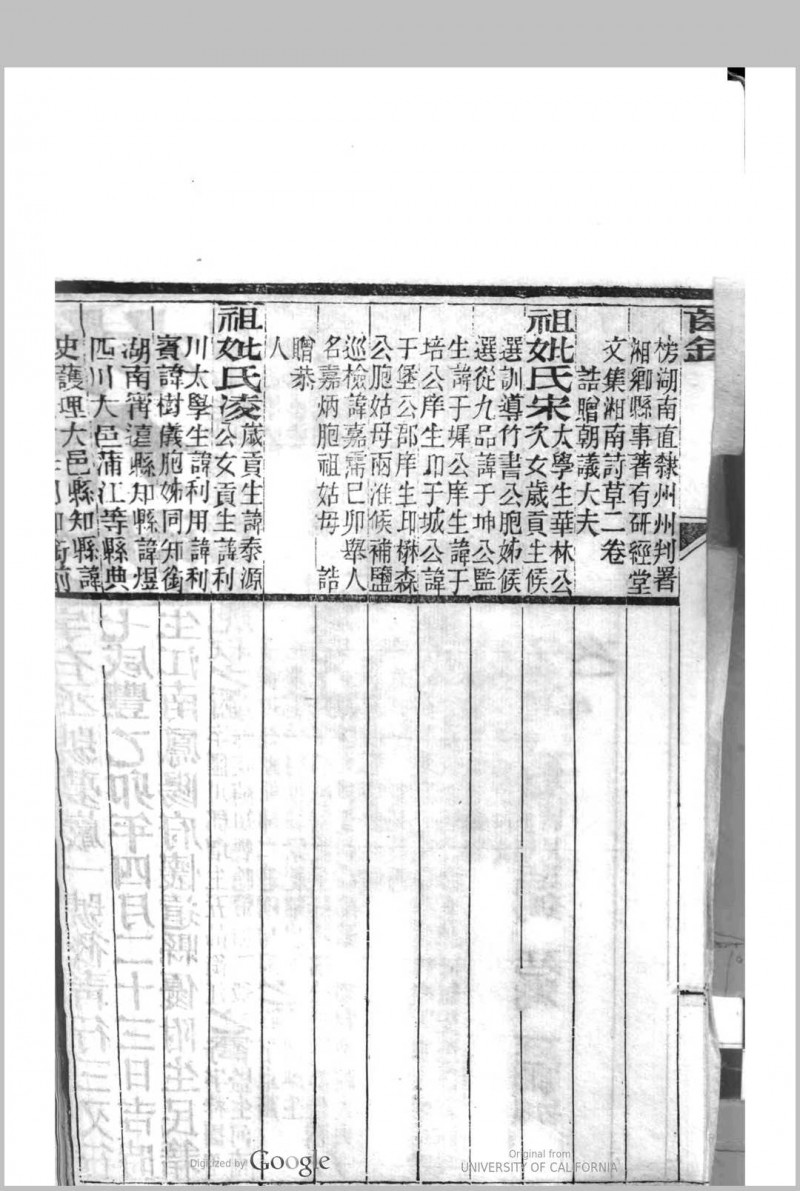 榜湖南直隸州州判署
湘鄉縣事著有研經堂
文集湘南詩草二卷
誥贈朝議大夫
祖妣氏宋太學生華林公
次女歲貢生候
選訓導竹書公胞姊候
選從九品諱于坤公監
生諱于墀公庠生諱于
培公庠生印于城公諱
于堡公郡庠生印楙森
公胞姑母兩淮候補鹽
巡檢諱嘉霈己卯舉人
名嘉炳胞祖姑母 誥
贈恭
人
祖妣氏凌歲貢生諱泰源
公女貢生諱利
川太學生諱利用諱利
賓諱樹儀胞姊同知銜
湖南甯遠縣知縣諱煜
四川大邑蒲江等縣典
史護理大邑縣知縣諱
Digitized by Google
Original from
UNIVERSITY OF CALIFORNIA